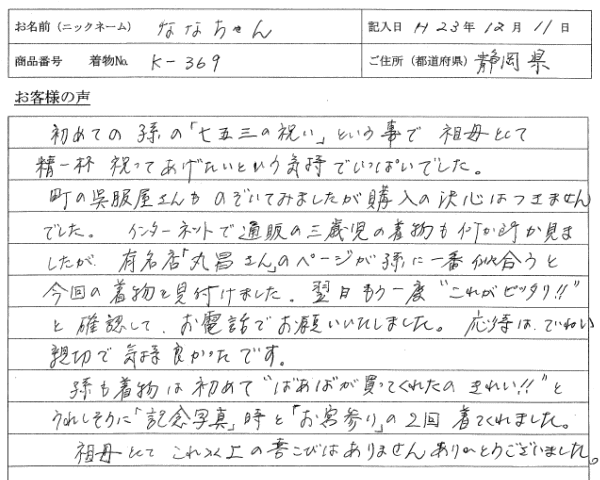 お名前（ニックネーム） ななちゃん 記入日 H 23年 12月 11日
商品番号 着物No. K-369 ご住所（都道府県） 静岡県
お客様の声
初めての 孫の「七五三の祝い」という事で 祖母として
精一杯 祝ってあげたいという気持でいっぱいでした。
町の呉服屋さんものぞいてみましたが購入の決心はつきません
でした。 インターネットで通販の三歳児の着物も何か所か見ま
したが、有名店「丸昌さん」のページが孫に一番似合うと
今回の着物を見付けました。翌日もう一度 "これがピッタリ!!"
と確認して、お電話でお願いいたしました。応待は、ていねい
親切で気持良かったです。
孫も着物は初めて "ばあばが買ってくれたの きれい!!"と
うれしそうに「記念写真」時と「お宮参り」の2回 着てくれました。
祖母として これ以上の喜こびはありません ありがとうございました。